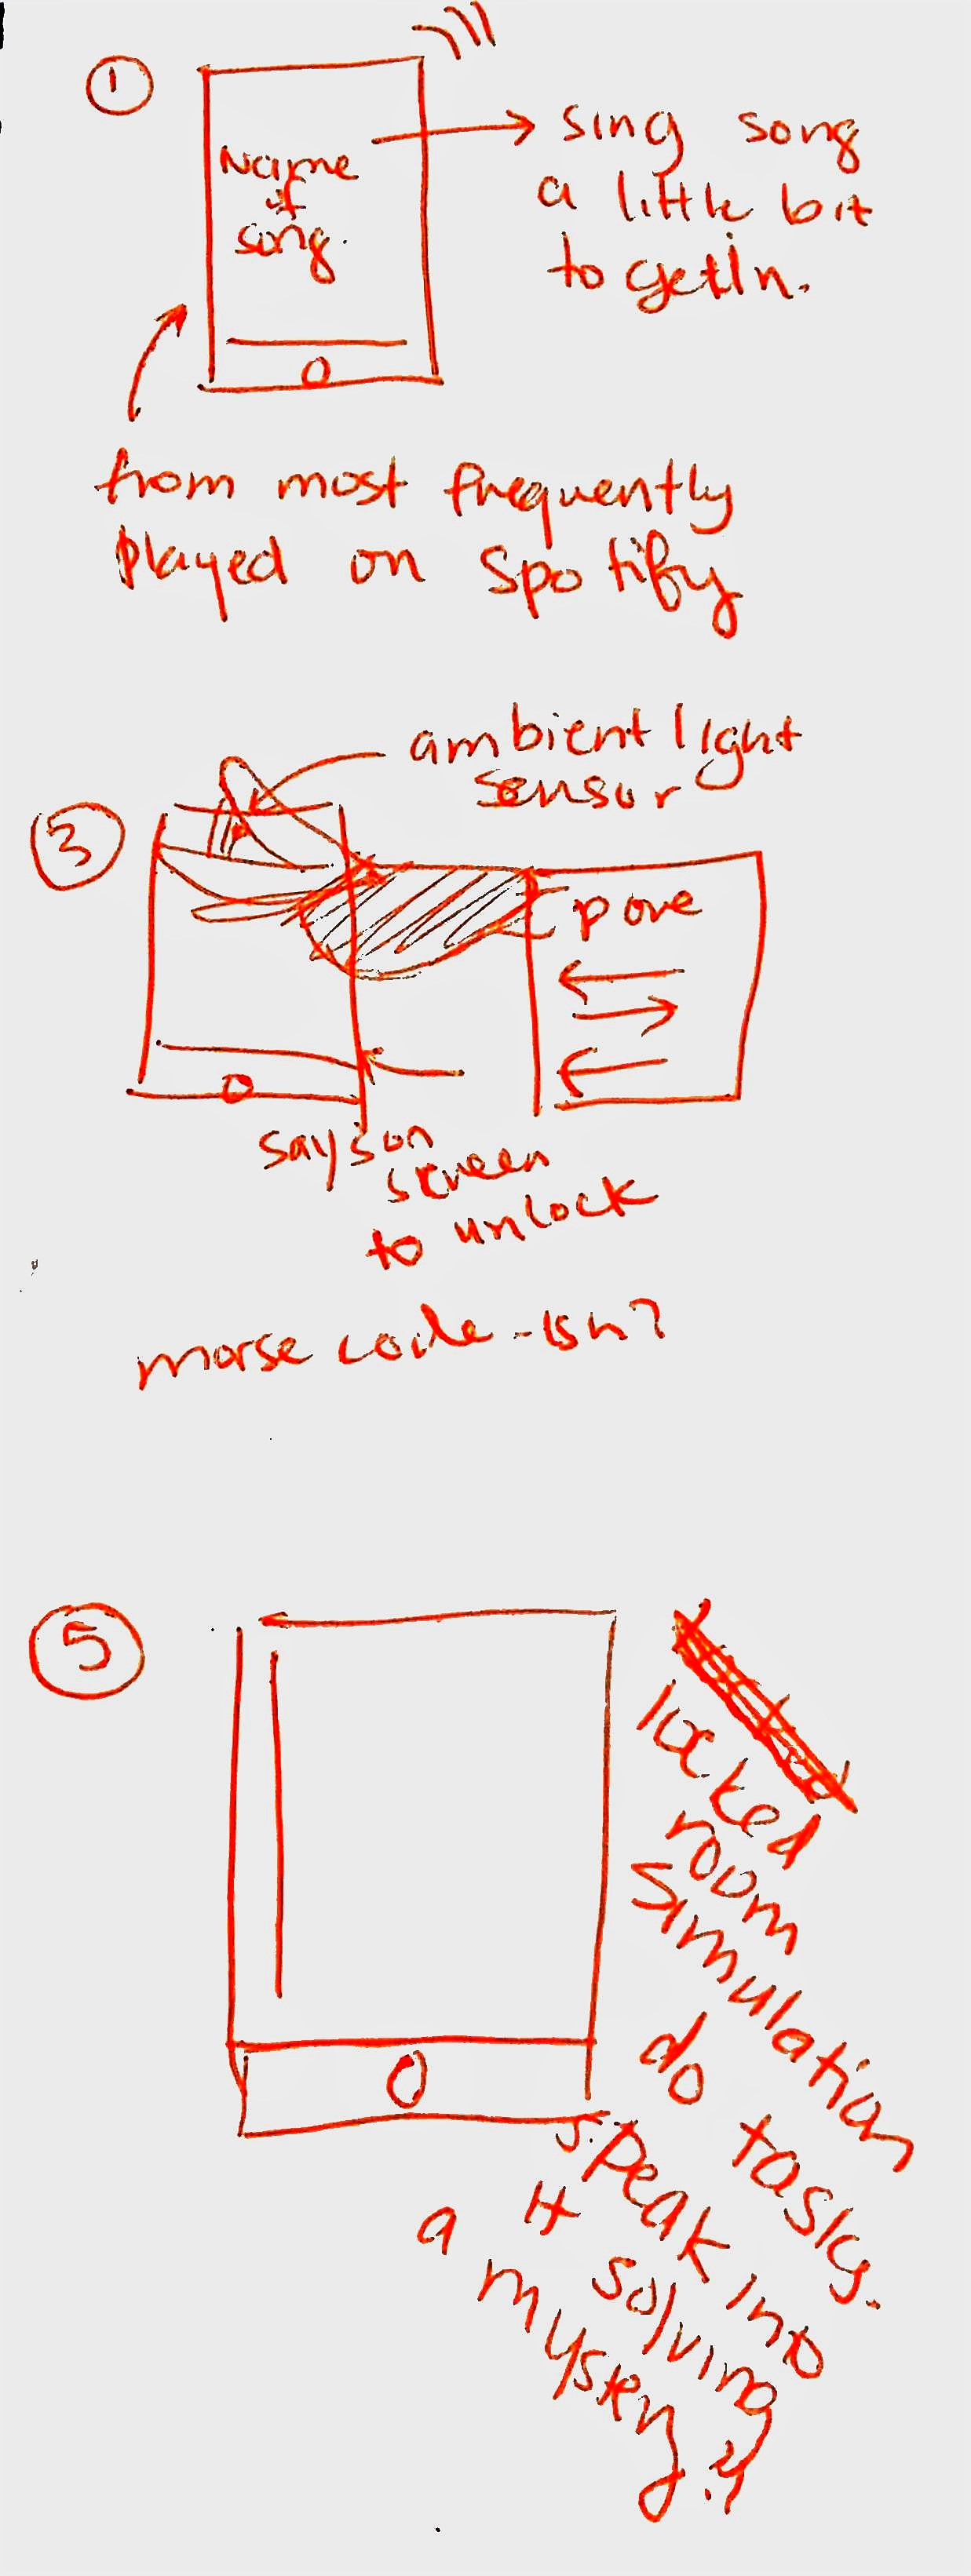 1
Name
of
song.
sing song
a little bit
to get in.
from most frequently
played on Spotify
3
ambient light
sensor
says on
screen
to unlock
morse code-ish?
5
locked
room
simulation
do tasks.
speak into
it solving
a mystery